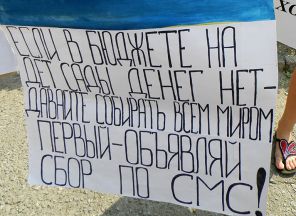 ЕСЛИ В БЮДЖЕТЕ НА
ДЕТ САДЫ ДЕНЕГ НЕТ-
ДАВАЙТЕ СОБИРАТЬ ВСЕМ МИРОМ
ПЕРВЫЙ-ОБЪЯВЛЯЙ
СБОР ПО СМС!